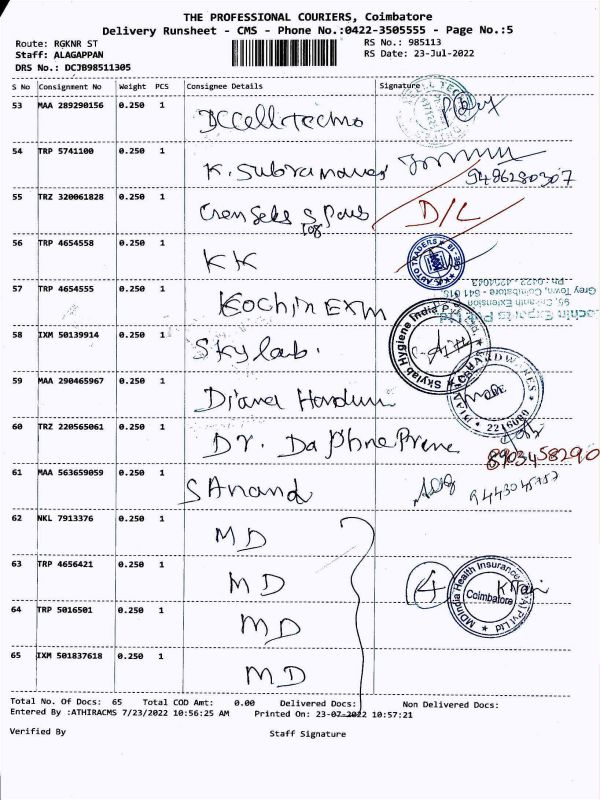 THE PROFESSIONAL COURIERS, Coimbatore
Delivery Runsheet - CMS - Phone No.:0422-3505555 - Page No.:5
Route: RGKNR ST
RS No.: 985113
Staff: ALAGAPPAN
RS Date: 23-Jul-2022
DRS No.: DCJB98511305
S No Consignment No Weight PCS Consignee Details Signature
53 MAA 289290156 0.250 1 DCCell Techno
54 TRP 5741100 0.250 1 K. Subramanian
9486280307
55 TRZ 320061828 0.250 1 D/L
56 TRP 4654558 0.250 1 KK
K.K. AUTO TRADERS
57 TRP 4654555 0.250 1 Kochin Exm
Cochin Exports Pvt Ltd
95, Extension
Grey Town, Coimbatore - 641 018
58 IXM 50139914 0.250 1 Skylab.
Skylab Hygiene India P
59 MAA 290465967 0.250 1 Diana
DIANA HARDWARES
2216080
60 TRZ 220565061 0.250 1 Dr. Daphne
8903458290
61 MAA 563659059 0.250 1 S Anand
62 NKL 7913376 0.250 1 MD
63 TRP 4656421 0.250 1 MD 4
MDIndia Health Insurance (TPA) Pvt Ltd
Coimbatore
64 TRP 5016501 0.250 1 MD
65 IXM 501837618 0.250 1 MD
Total No. Of Docs: 65 Total COD Amt: 0.00 Delivered Docs: Non Delivered Docs:
Entered By :ATHIRACMS 7/23/2022 10:56:25 AM Printed On: 23-07-2022 10:57:21
Verified By Staff Signature